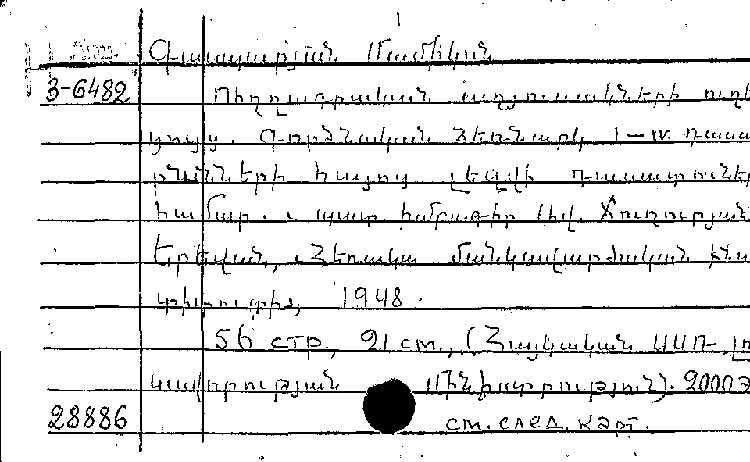 Գասպարյան Մամիկոն
3-6482 Ուղղագրական աղյուսակների ուղե
ցույց. Գործնական ձեռնարկ I-IV դասա
րանների հայոց լեզվի դասատուներ
համար.
Երեվան, Հեռակա մանկավարժական ինս
տիտուտի, 1948.
56 стр., 21 см., (Հայկական ՍՍՌ լու
սավորության մինիստրություն). 2000 э
28886 см. след. карт.